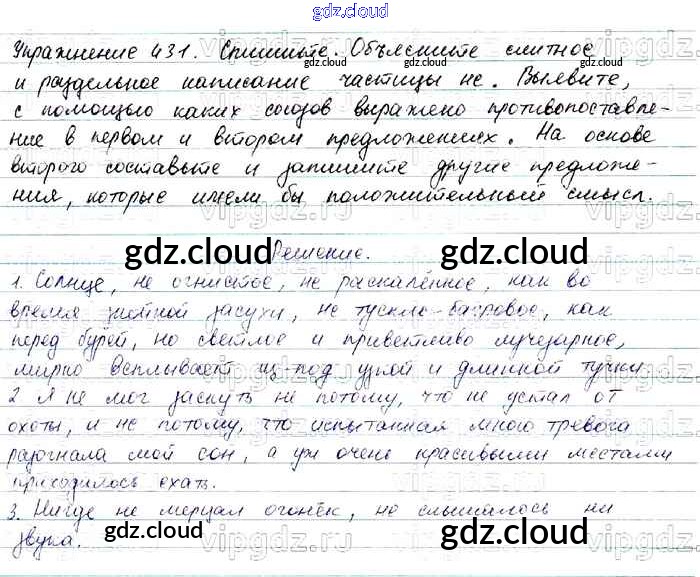 gdz.cloud
Упражнение 431. Спишите. Объясните слитное
и раздельное написание частицы не. Выявите,
с помощью каких союзов выражено противопоставле-
ние в первом и втором предложениях. На основе
второго составьте и запишите другие предложе-
ния, которые имели бы положительный смысл.
Решение.
1. Солнце, не огнистое, не раскалённое, как во
время знойной засухи, не тускло-багровое, как
перед бурей, но светлое и приветливо лучезарное,
мирно всплывает из-под узкой и длинной тучки.
2 Я не мог заснуть не потому, что не устал от
охоты, и не потому, что испытанная мною тревога
разогнала мой сон, а уж очень красивыми местами
приходилось ехать.
3. Нигде не мерцал огонёк, не слышалось ни
звука.